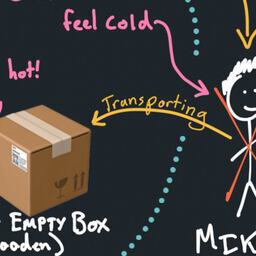 feel cold
hot!
Transporting
EMPTY BOX
ooden)
MIK